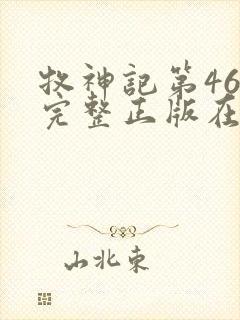 牧神記第46
完整正版在
山北東